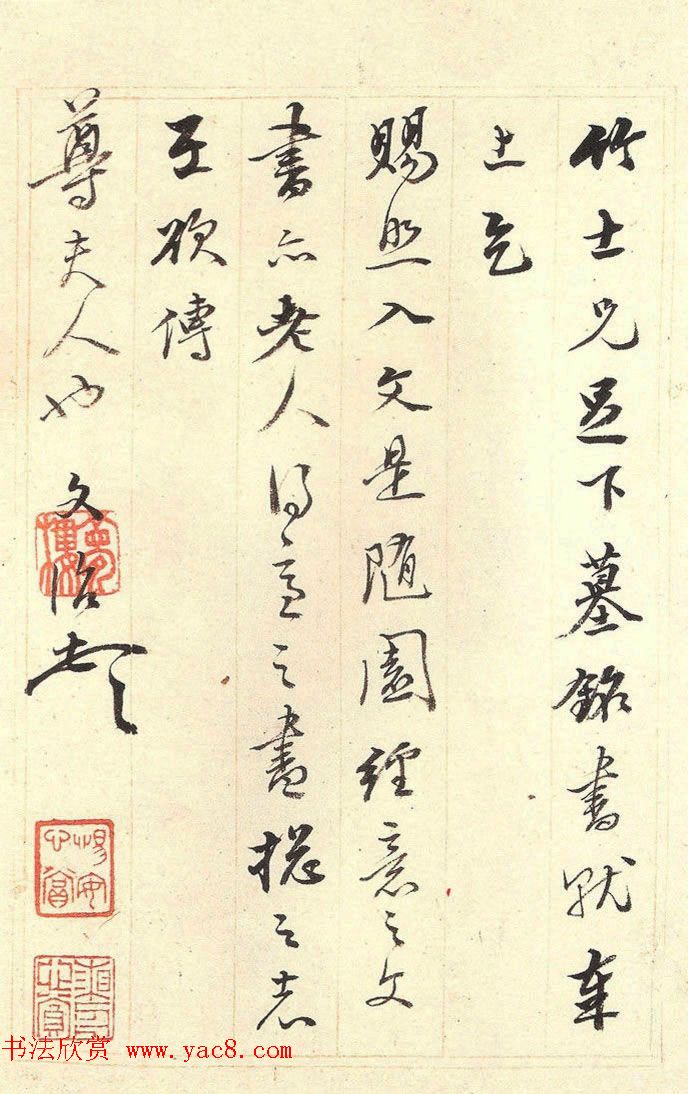 竹士兄足下墓銘書就奉
上乞
賜照入文是隨園經意之文
書亦老人得意之書總之志
在欲傳
尊夫人也 文治頓
书法欣赏 www.yac8.com